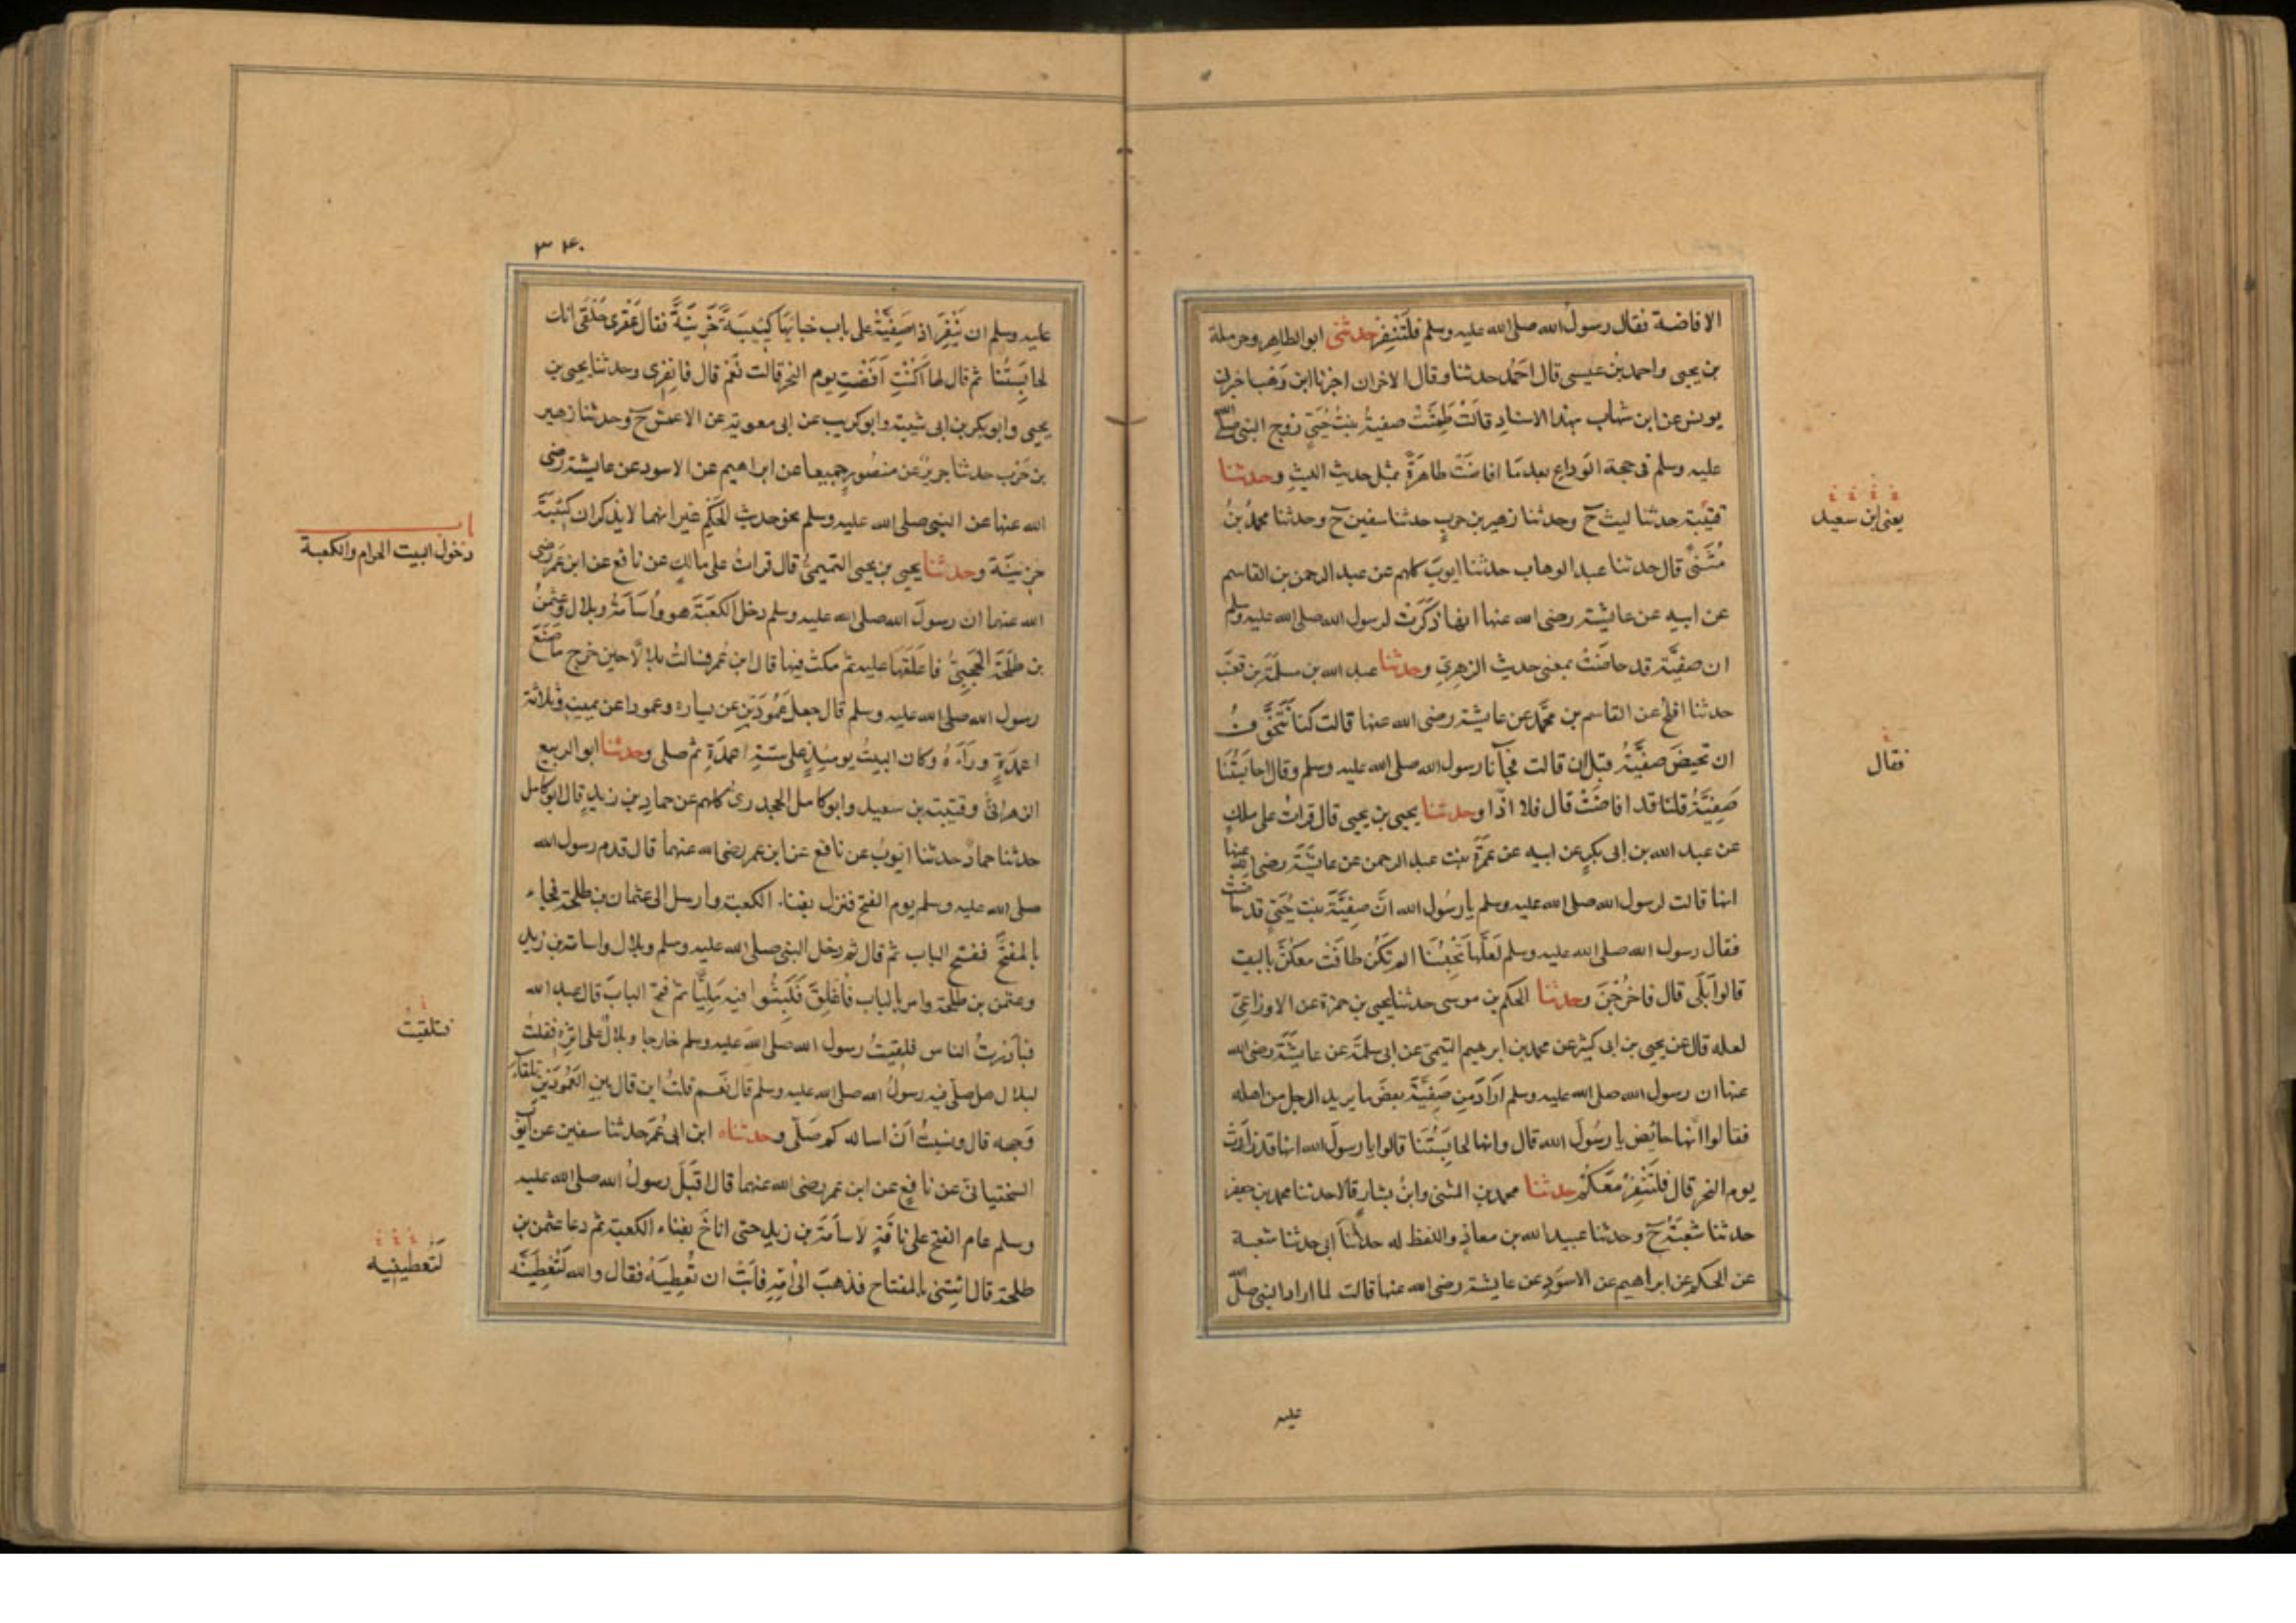 الافاضة فقال رسول الله صلى الله عليه وسلم فَلْتَنْفِرْ حدثنى ابو الطاهر وحرملة
بن يحيى واحمد بن عيسى قال احمَدُ حدثنا وقال الاخران اخبرنا ابن وَهْب اخبرنى
يونس عن ابن شهاب بهذا الاسناد قالَتْ طَمِثَتْ صفيةُ بنتُ حُيَيٍّ زوج النبى صلى الله
عليه وسلم فى حجة الوَداع بعد مَا افاضَتْ طاهرَةً بمثل حديث الليثِ وحدثنا
قتيبة حدثنا ليث ح وحدثنا زهير بن حربٍ حدثنا سفين ح وحدثنا محمدُ بنُ
مُثَنىًّ قال حدثنا عبد الوهاب حدثنا ايوبُ كلهم عن عبد الرحمن بن القاسم
عن ابيه عن عايشة رضى الله عنها انها ذكَرَت لرسول الله صلى الله عليه وسلم
ان صفيَّة قد حاضَتْ بمعنى حديث الزهرىِّ وحدثنا عبد الله بن مسلَمَة بن قعنَب
حدثنا افلح عن القاسم بن محمَّد عن عايشة رضى الله عنها قالت كنا نَتَخَوَّفُ
ان تحيضَ صفيَّةُ قبل ان قالت فجآنا رسول الله صلى الله عليه وسلم وقال احابِسَتُنَا
صَفِيَّةُ قلنا قد افاضَتْ قال فلا اذًا وحدثنا يحيى بن يحيى قال قراتُ على ملكٍ
عن عبد الله بن ابى بكرٍ عن ابيه عن عمَرَةَ بنت عبد الرحمن عن عايشَةَ رضى الله عنها
انها قالت لرسول الله صلى الله عليه وسلم يا رسُول الله انَّ صفِيَّةَ بنت حُيَىٍّ قد حاضت
فقال رسول الله صلى الله عليه وسلم لَعَلَّها تَحْبِسُنَا الم تَكُن طافَتْ معكُنَّ بالبيت
قالوا بَلَى قال فاخرُجْنَ وحدثنا الحكم بن موسى حدثنا يحيى بن حمزة عن الاوزاعىّ
لعله قال عن يحيى بن ابى كثير عن محمد بن ابرهيم التيمى عن ابى سلمَة عن عايشَةَ رضى الله
عنها ان رسول الله صلى الله عليه وسلم ارادَ مِن صَفِيَّةَ بعضَ ما يريد الرجل من اهله
فقالوا انَّها حائض يا رسُولَ الله قال وانها لحابِسَتُنَا قالوا يا رسولَ الله انها قد زارَت
يوم النحر قال فلتَنْفِرْ مَعَكُم حدثنا محمد بن المثنى وابنُ بشارٍ قالا حدثنا محمد بن جعفر
حدثنا شعبَةُ ح وحدثنا عبيد الله بن معاذٍ واللفظ له حدثنآ ابى حدثنا شعبة
عن الحكم عن ابراهيم عن الاسوَدِ عن عايشة رضى الله عنها قالت لما اراد النبى صلى الله
يعنى ابن سعيد
فقال
عليه
٣٤٠
عليه وسلم ان يَنْفِرَ اذا صَفِيَّةُ على باب خبايَهَا كئِيبَةً حَزينَةً فقال عَقْرى حَلْقَى انك
لحابِسَتُنا ثم قال لها اَكُنْتِ اَفَضْتِ يوم النحر قالت نَعَم قال فانفِرى وحدثنا يحيى بن
يحيى وابو بكر بن ابى شيبة وابو كريب عن ابى معوية عن الاعمش ح وحدثنا زهير
بن حَرْب حدثنا جريرٌ عن منصُورٍ جميعا عن ابراهيم عن الاسود عن عايشة رضى
الله عنها عن النبى صلى الله عليه وسلم نحو حديث الحَكَمِ غير انهما لا يذكران كئيبَةً
حزينَة وحدثنا يحيى بن يحيى التميمىُّ قال قراتُ على مالكٍ عن نافع عن ابن عُمَر رضى
الله عنهما ان رسولَ الله صلى الله عليه وسلم دخل الكعبَةَ هو واُسَامَةُ وبلال وعثمنُ
بن طلحَةَ الحجَبىُّ فاغلَقَهَا عليه ثم مكث فيها قال ابن عُمر فسالتُ بلالًا حين خرج ما صَنَعَ
رسول الله صلى الله عليه وسلم قال جعل عَمُودَين عن يساره وعمودا عن يمينه وثلاثة
اعمدَةٍ ورَآءَهُ وكان البيتُ يومئذٍ على ستَّةِ اعمدَةٍ ثم صلى وحدثنا ابو الربيع
الزهرانىُّ وقتيبة بن سعيد وابو كامل الجحدرىُّ كلهم عن حماد بن زيدٍ قال ابو كامل
حدثنا حمادٌ حدثنا ايوبُ عن نافع عن ابن عمر رضى الله عنهما قال قدم رسول الله
صلى الله عليه وسلم يوم الفتح فنزل بفناء الكعبة وارسل الى عثمان بن طلحة فجاء
بالمفتَح ففتح الباب ثم قال ثم دخل النبى صلى الله عليه وسلم وبلال واسامة بن زيد
وعثمن بن طلحة وامر بالباب فاُغلِقَ فَلَبِثُوا فيه مَلِيًّا ثم فتح البابَ قال عبد الله
فبادَرتُ الناس فلقيتُ رسول الله صلى الله عليه وسلم خارجا وبلالٌ على اثرِه فقلتُ
لبلال هل صلّى فيه رسولُ الله صلى الله عليه وسلم قال نَعَم قلتُ اين قال بين العَمُودَيْن تلقآءَ
وَجهه قال ونسيتُ اَنْ اساله كم صَلَّى وحدثناه ابن ابى عُمَر حدثنا سفين عن ايوب
السختيانىّ عن نافعٍ عن ابن عمر رضى الله عنهما قال اقبَلَ رسولُ الله صلى الله عليه
وسلم عام الفتح على ناقَةٍ لاُسامَةَ بن زيد حتى اناخَ بفناء الكعبة ثم دعا عثمن بن
طلحة قال ائتِنى بالمفتاح فذهبَ الى اُمِّهِ فاَبَتْ ان تُعطِيَهُ فقال والله لَتُعْطِيَنَّه
باب
دخول البيت الحرام والكعبة
فتلقيتُ
لَتعطينيه